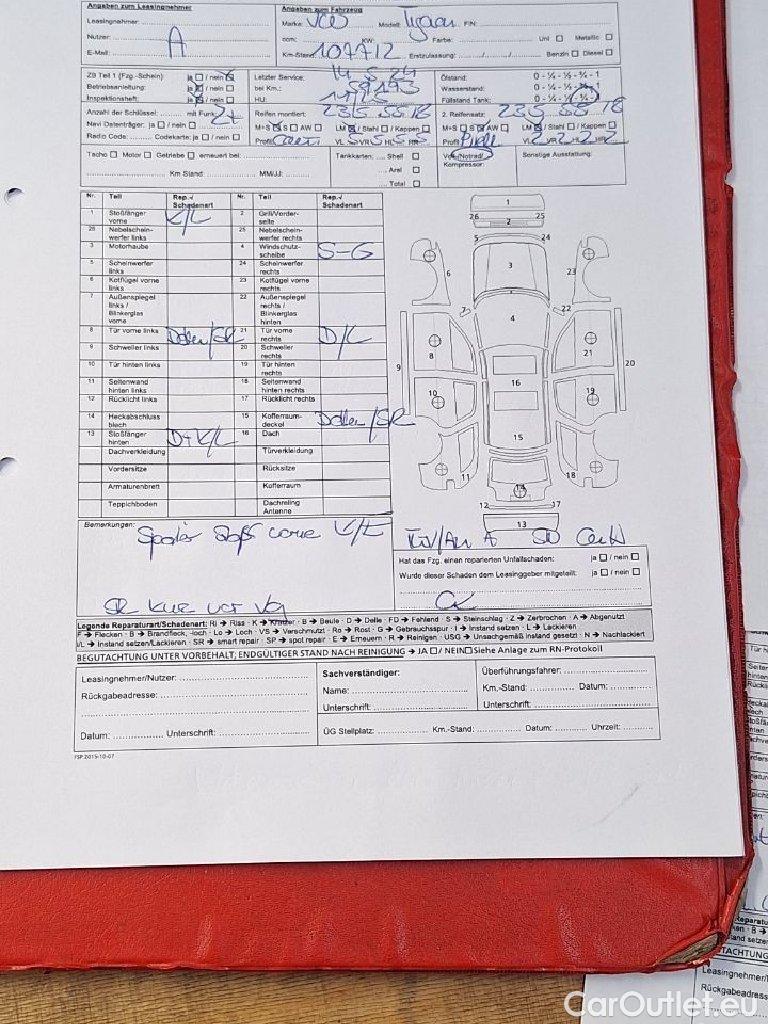 Angaben zum Leasingnehmer
Angaben zum Fahrzeug
Leasingnehmer:
Marke: VW Modell: Tiguan FIN:
Nutzer: A
ccm: KW: Farbe: Uni Metallic
E-Mail:
Km-Stand: 107712 Erstzulassung: Benzin Diesel
ZB Teil 1 (Fzg.-Schein) ja / nein
Letzter Service: 14.5.24
Ölstand: 0 - ¼ - ½ - ¾ - 1
Betriebsanleitung: ja / nein
bei Km.:
Wasserstand: 0 - ¼ - ½ - ¾ - 1
Inspektionsheft: ja / nein
HU:
Füllstand Tank: 0 - ¼ - ½ - ¾ - 1
Anzahl der Schlüssel: mit Funk: 2x
Reifen montiert: 235 55 18
2. Reifensatz: 235 55 18
Navi Datenträger: ja / nein
M+S S AW LM / Stahl / Kappen
M+S S AW LM / Stahl / Kappen
Radio Code: Codekarte: ja / nein
Profil VL 5 VR 5 HL 5 HR 5
Profil Pirelli VL 2 VR 2 HL 2 HR 2
Tacho Motor Getriebe erneuert bei:
Tankkarten: Shell
Vor./Notrad/
Kompressor:
Sonstige Ausstattung:
Km Stand: MM/JJ:
Aral
Total
Nr. Teil Rep.-/ Schadenart Nr. Teil Rep.-/ Schadenart
1 Stoßfänger vorne K/L 2 Grill/Vorderseite
26 Nebelscheinwerfer links 25 Nebelscheinwerfer rechts
3 Motorhaube 4 Windschutzscheibe S-G
5 Scheinwerfer links 24 Scheinwerfer rechts
6 Kotflügel vorne links 23 Kotflügel vorne rechts
7 Außenspiegel links / Blinkerglas vorne 22 Außenspiegel rechts / Blinkerglas hinten
8 Tür vorne links Dellen/SR 21 Tür vorne rechts D/L
9 Schweller links 20 Schweller rechts
10 Tür hinten links 19 Tür hinten rechts
11 Seitenwand hinten links 18 Seitenwand hinten rechts
12 Rücklicht links 17 Rücklicht rechts
14 Heckabschlussblech 15 Kofferraumdeckel Dellen/SR
13 Stoßfänger hinten D+K/L 16 Dach
Dachverkleidung Türverkleidung
Vordersitze Rücksitze
Armaturenbrett Kofferraum
Teppichboden Dachreling Antenne
1
26 25
2
5 24
6 3 23
7 22
4
8 21
9 20
16
10 19
15
11 18
14
12 17
13
Bemerkungen:
Spoiler Stoßf vorne K/E
Hat das Fzg. einen reparierten Unfallschaden: ja / nein
Wurde dieser Schaden dem Leasinggeber mitgeteilt: ja / nein
Legende Reparaturart/Schadenart: RI → Riss - K → Kratzer - B → Beule - D → Delle - FD → Fehlend - S → Steinschlag - Z → Zerbrochen - A → Abgenutzt
F → Flecken - B → Brandfleck, -loch - Lo → Loch - VS → Verschmutzt - Ro → Rost - G → Gebrauchsspur - I → Instand setzen - L → Lackieren
I/L → Instand setzen/Lackieren - SR → smart repair - SP → spot repair - E → Erneuern - R → Reinigen - USG → Unsachgemäß instand gesetzt - N → Nachlackiert
BEGUTACHTUNG UNTER VORBEHALT; ENDGÜLTIGER STAND NACH REINIGUNG → JA / NEIN Siehe Anlage zum RN-Protokoll
Leasingnehmer/Nutzer:
Sachverständiger:
Überführungsfahrer:
Rückgabeadresse:
Name:
Km.-Stand: Datum:
Unterschrift:
Unterschrift:
Datum: Unterschrift:
ÜG Stellplatz: Km.-Stand: Datum: Uhrzeit:
FSP 2015-10-07
Leasingnehmer/
Rückgabeadresse
CarOutlet.eu